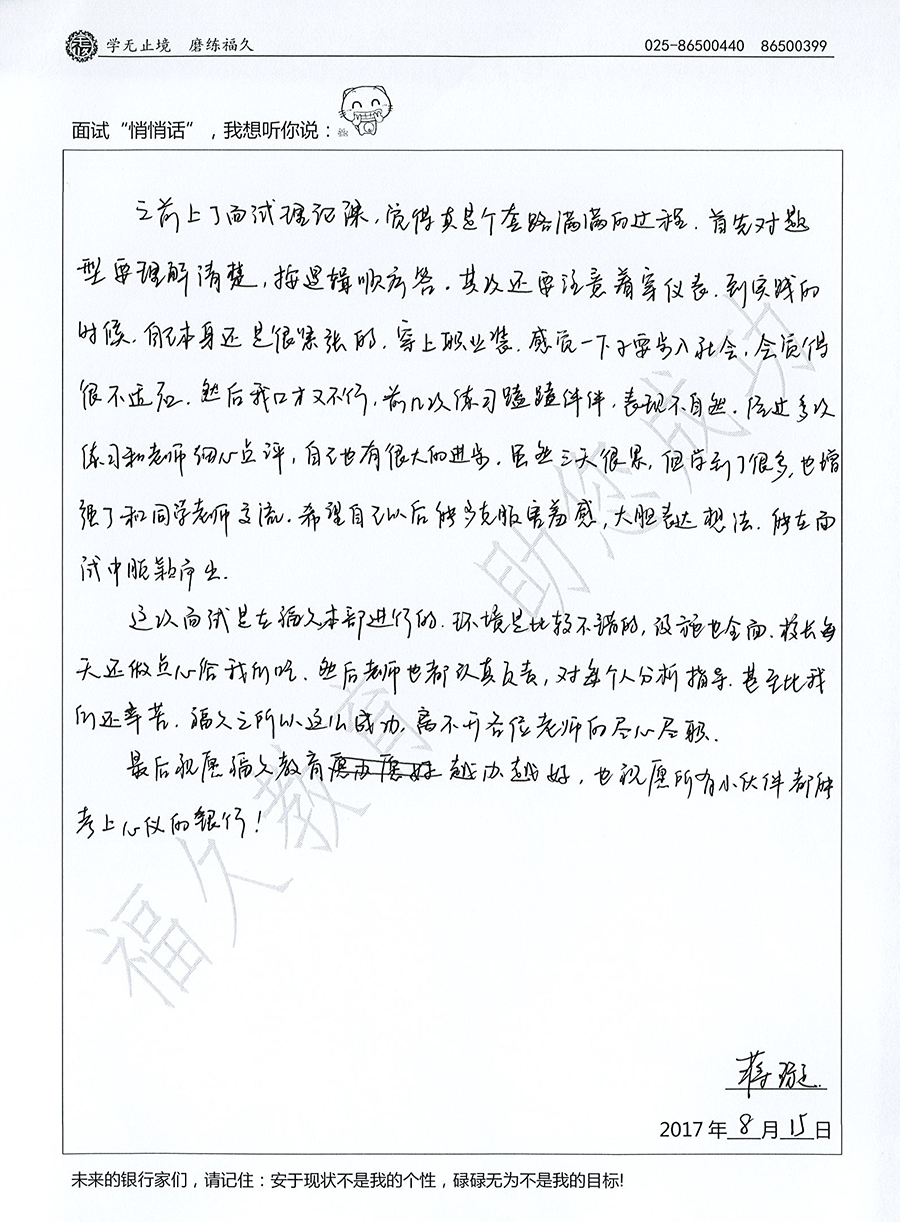 学无止境 磨练福久
025-86500440 86500399
面试“悄悄话”，我想听你说：
之前上了面试理论课，觉得真是个套路满满的过程．首先对题
型要理解清楚，按逻辑顺序答．其次还要注意着穿仪表．到实践的
时候，自己本身还是很紧张的．穿上职业装．感觉一下子要步入社会，会觉得
很不适应．然后我口才又不行，前几次练习磕磕伴伴，表现不自然．经过多次
练习和老师细心点评，自己也有很大的进步．虽然三天很累，但学到了很多，也增
强了和同学老师交流．希望自己以后能多克服害羞感，大胆表达想法．能在面
试中脱颖而出．
这次面试是在福久本部进行的．环境是比较不错的，设施也全面．校长每
天还做点心给我们吃．然后老师也都认真负责，对每个人分析指导．甚至比我
们还辛苦．福久之所以这么成功，离不开各位老师的尽心尽职．
最后祝愿福久教育越办越好，也祝愿所有小伙伴都能
考上心仪的银行！
福久教育 助您成功
蒋璇
2017年8月15日
未来的银行家们，请记住：安于现状不是我的个性，碌碌无为不是我的目标!